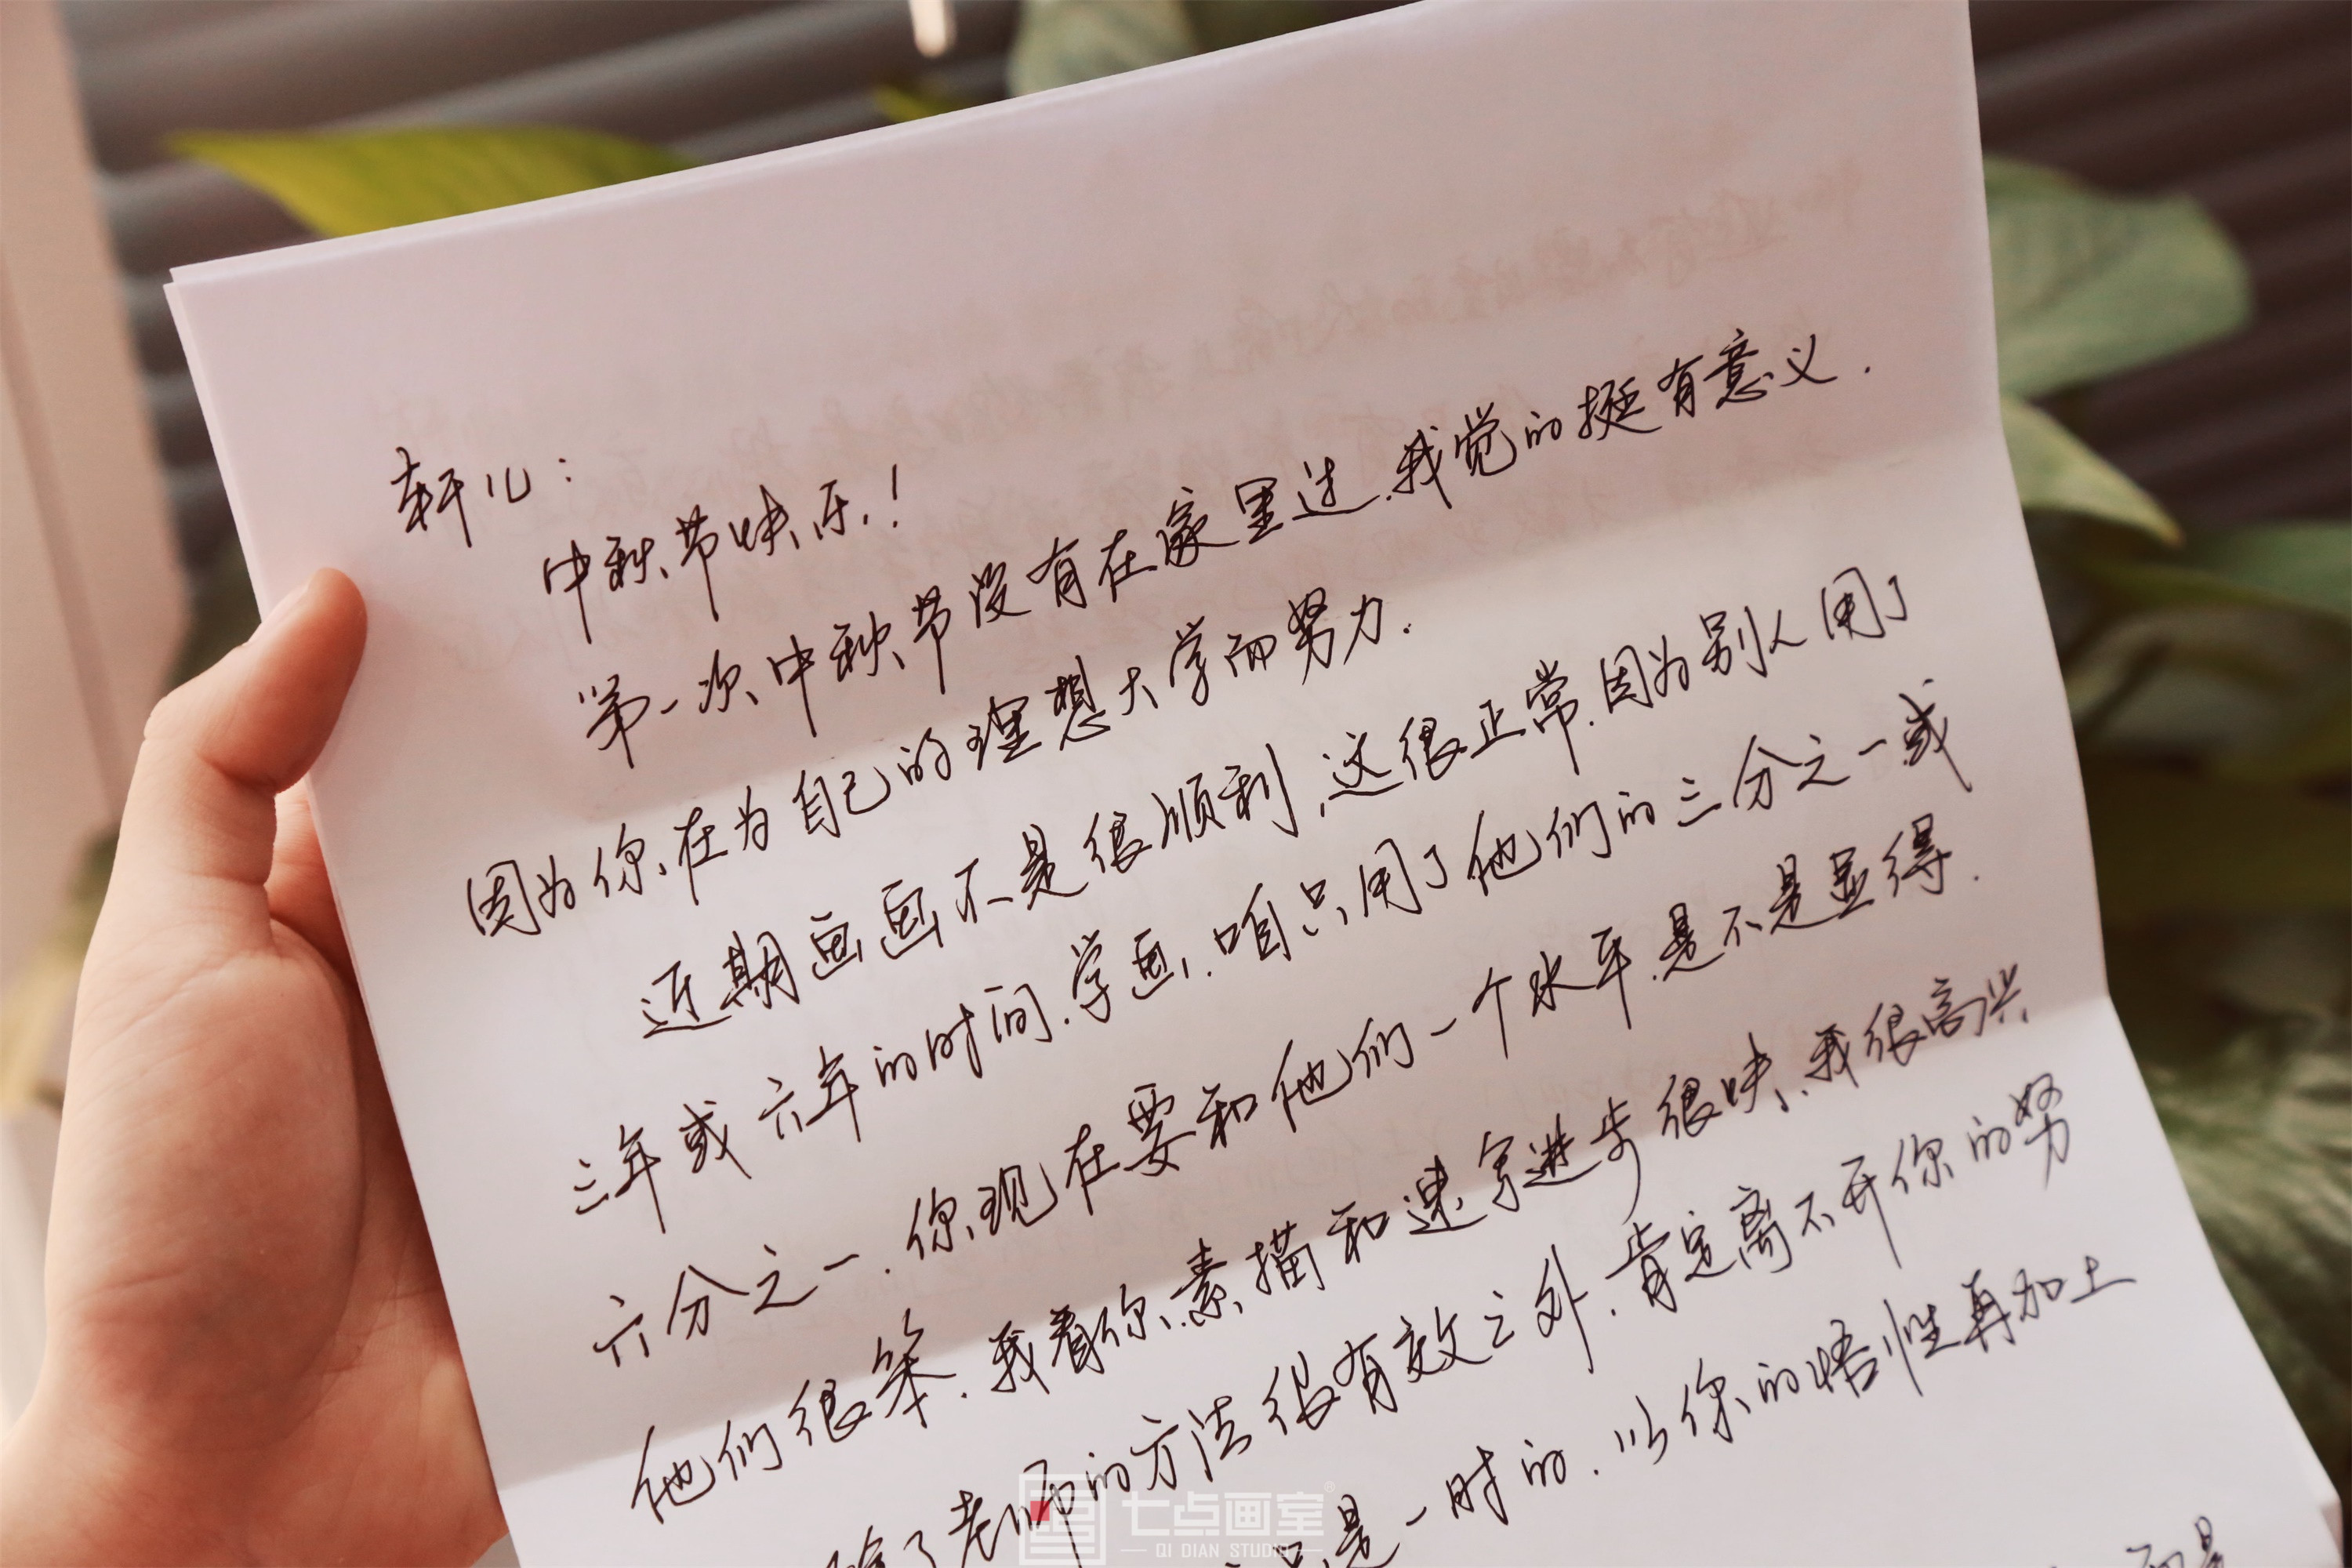 轩儿：
中秋节快乐！
第一次中秋节没有在家里过.我觉的挺有意义.
因为你在为自己的理想大学而努力.
近期画画不是很顺利.这很正常.因为别人用了
三年或六年的时间.学画.咱只用了他们的三分之一或
六分之一.你现在要和他们一个水平.是不是显得.
他们很笨.我看你素描和速写进步很快.我很高兴
除了老师的方法很有效之外.肯定离不开你的努
是一时的.以你的悟性再加上
七点画室®
QI DIAN STUDIO